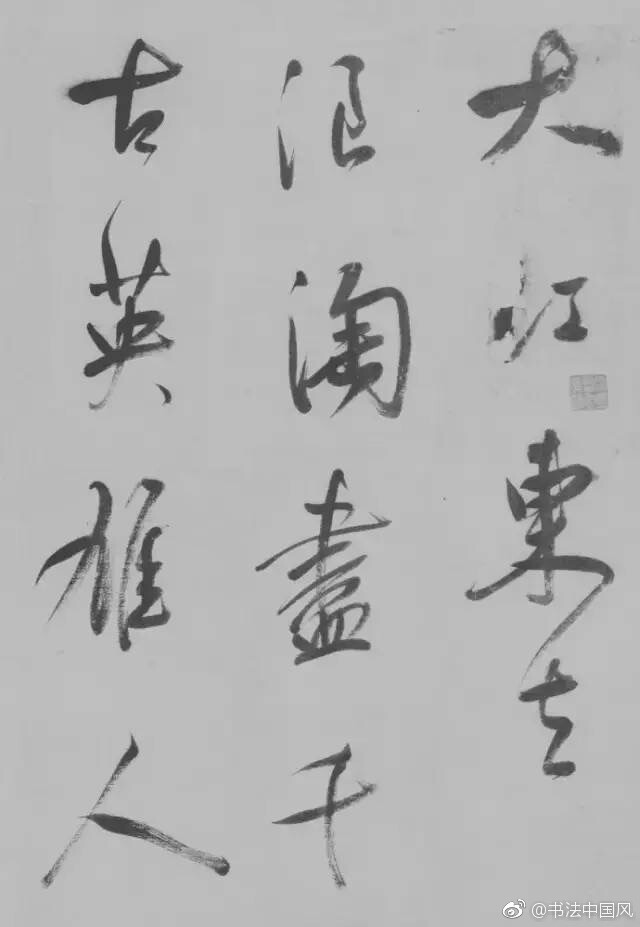 大江東去
浪淘盡千
古英雄人
@书法中国风